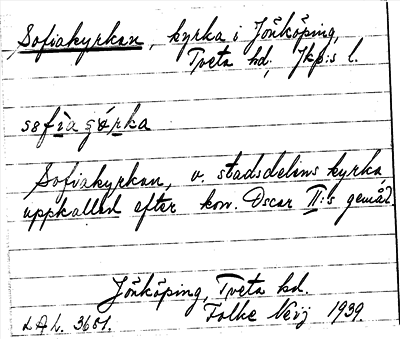 Sofiakyrkan, kyrka i Jönköping,
Tveta hd, Jkp:s l.
Sofiakyrkan, v. stadsdelens kyrka,
uppkallad efter kon. Oscar II:s gemål.
Jönköping, Tveta hd.
Folke Neij 1939.
LAL. 3651.